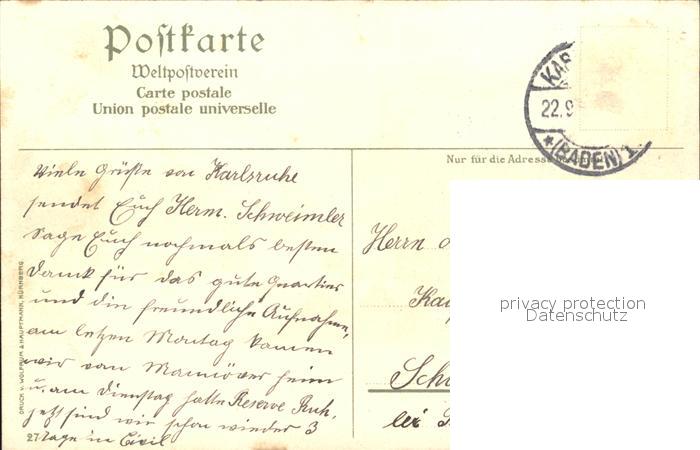 Postkarte
Weltpostverein
Carte postale
Union postale universelle
KAR
22.9
(BADEN) 1.
Nur für die Adresse
Viele Grüße von Karlsruhe
sendet Euch Herm. Schweimler
Sage Euch nochmals besten
Dank für das gute Quartier
und die freundliche Aufnahme,
am letzen Montag kamen
wir vom Manöver heim
u. am Dienstag hatte Reserve Ruh,
jetzt sind wir schon wieder 3
Tage in Civil
27
DRUCK V. WOLFRUM & HAUPTMANN, NÜRNBERG.
Herrn
privacy protection
Datenschutz